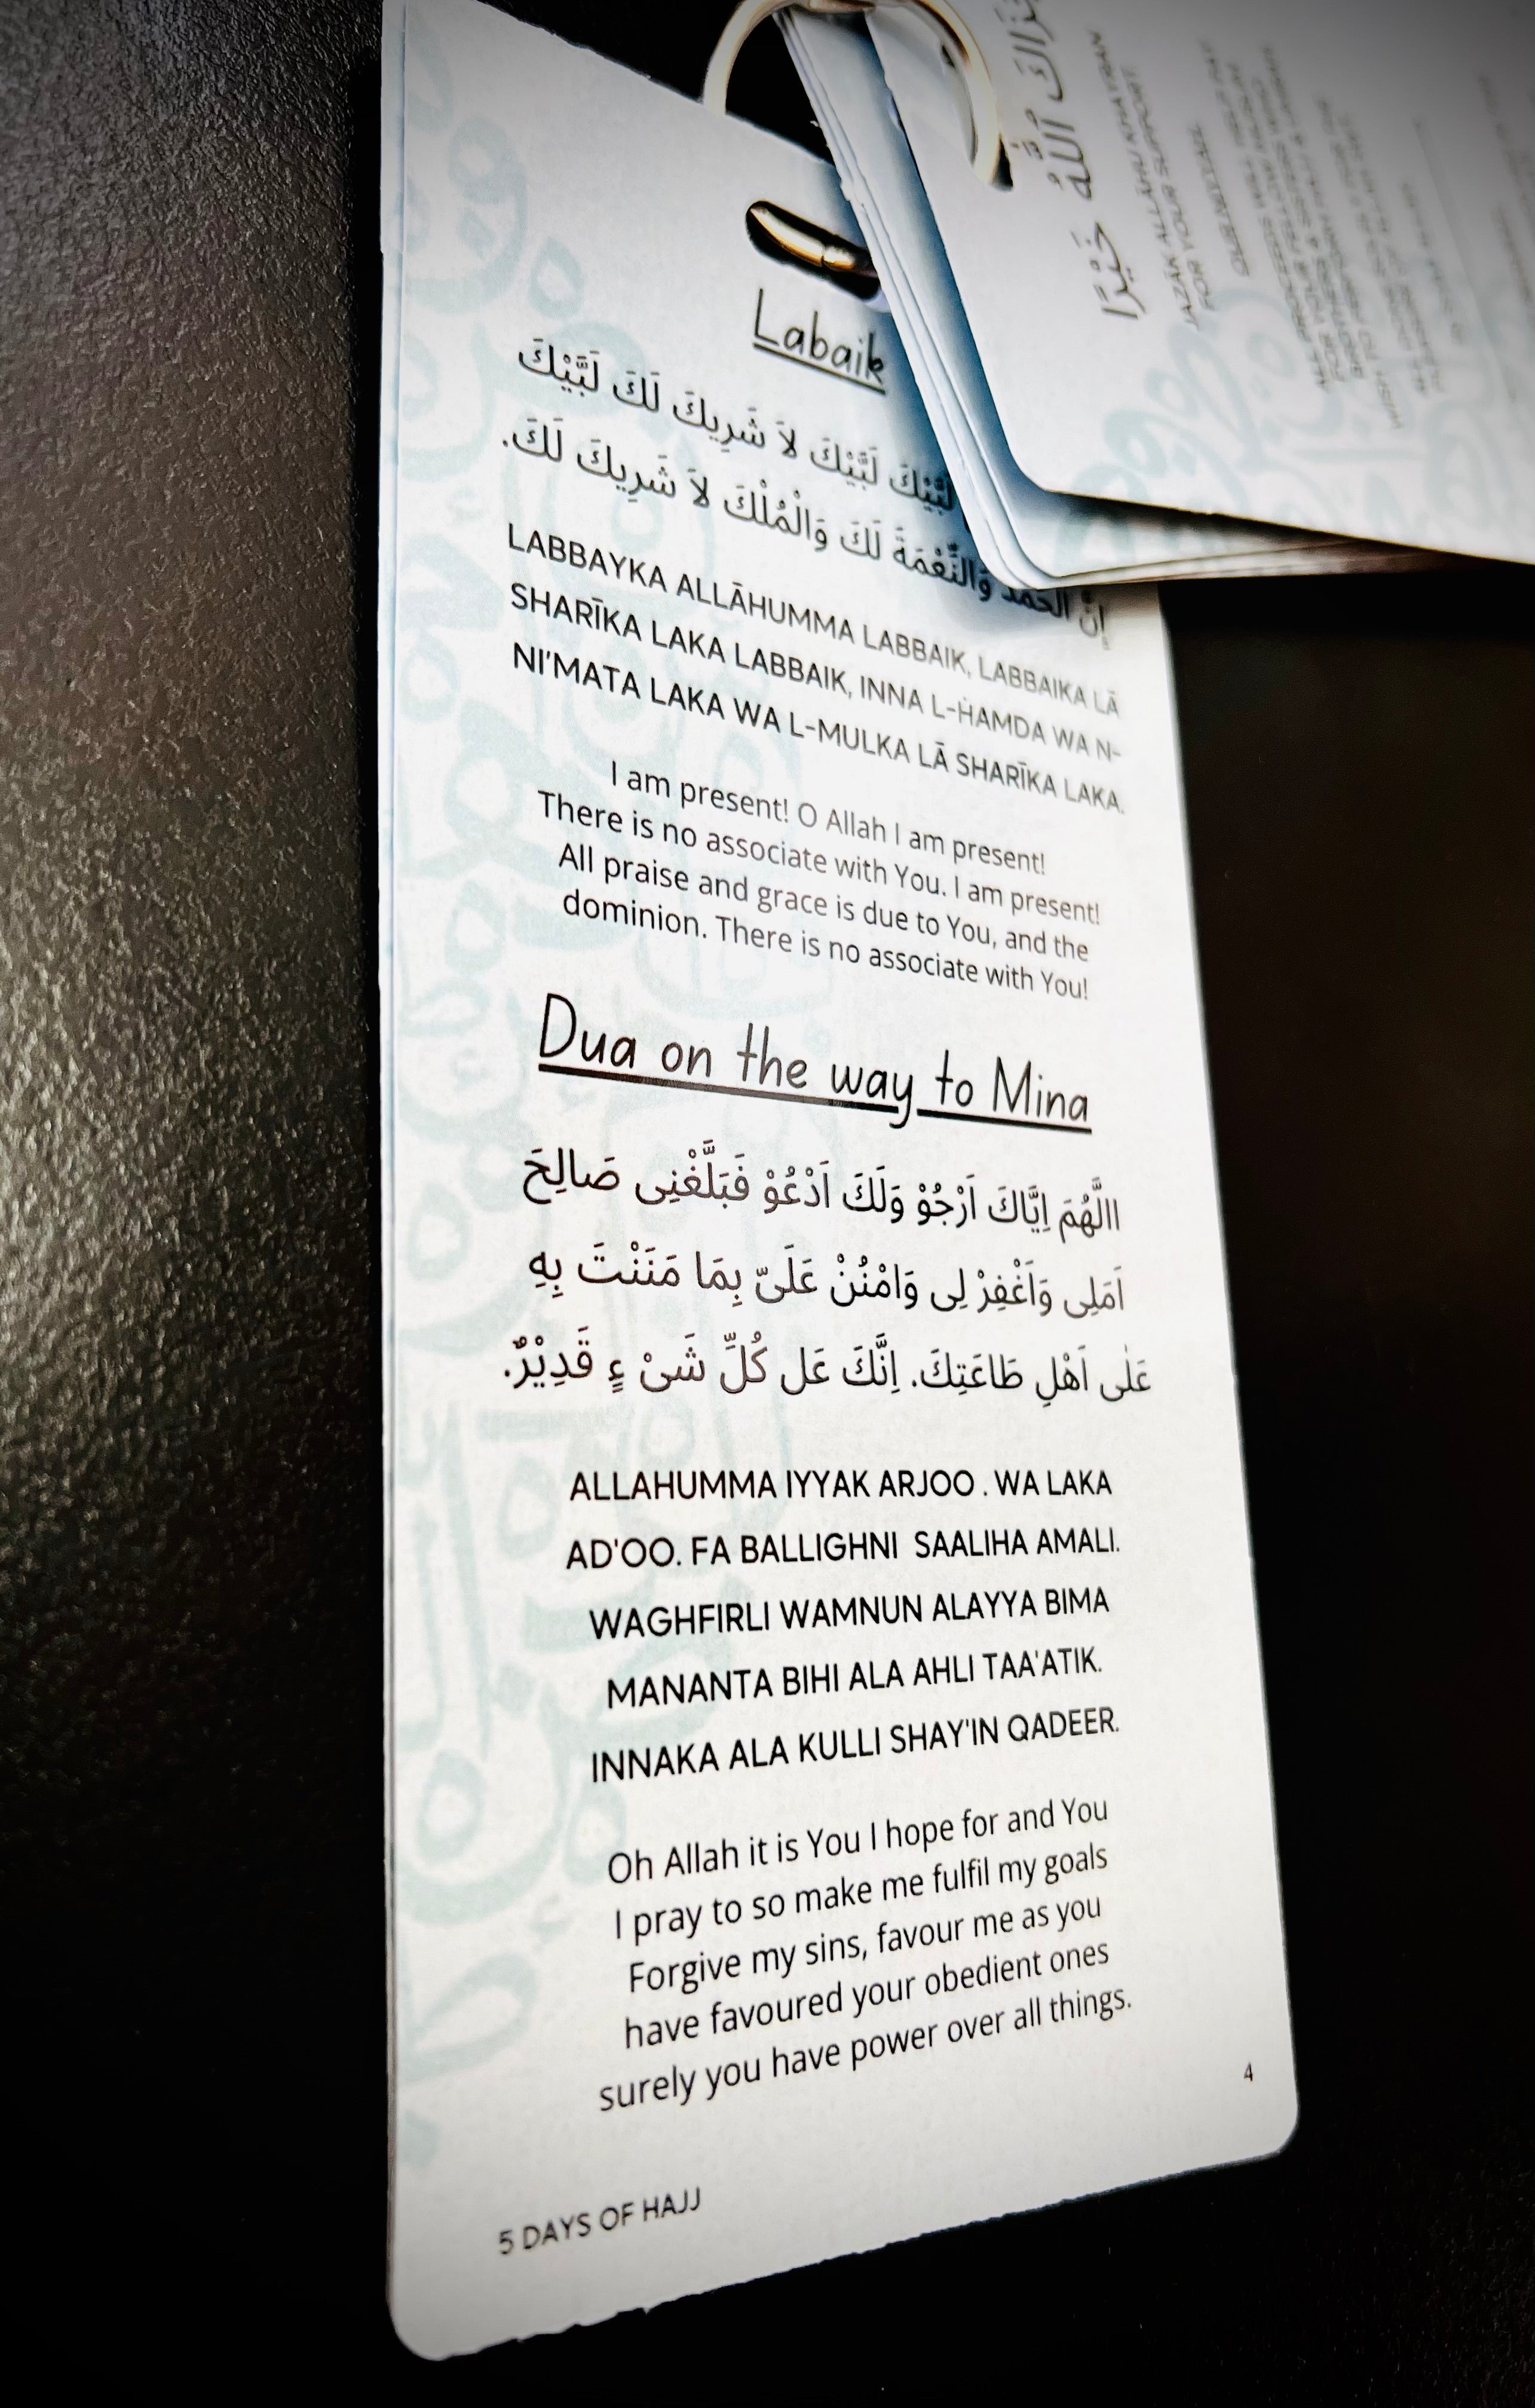 Labaik
لَبَّيْكَ لَبَّيْكَ لَا شَرِيكَ لَكَ لَبَّيْكَ
إِنَّ الْحَمْدَ وَالنِّعْمَةَ لَكَ وَالْمُلْكَ لَا شَرِيكَ لَكَ.
LABBAYKA ALLĀHUMMA LABBAIK, LABBAIKA LĀ
SHARĪKA LAKA LABBAIK, INNA L-ḢAMDA WA N-
NI'MATA LAKA WA L-MULKA LĀ SHARĪKA LAKA.
I am present! O Allah I am present!
There is no associate with You. I am present!
All praise and grace is due to You, and the
dominion. There is no associate with You!
Dua on the way to Mina
االَّهُمَ اِيَّاكَ اَرْجُوْ وَلَكَ اَدْعُوْ فَبَلَّغْنِى صَالِحَ
اَمَلِى وَاَغْفِرْ لِى وَامْنُنْ عَلَىّ بِمَا مَنَنْتَ بِهِ
عَلٰى اَهْلِ طَاعَتِكَ. اِنَّكَ عَل كُلِّ شَىْ ءٍ قَدِيْرٌ.
ALLAHUMMA IYYAK ARJOO . WA LAKA
AD'OO. FA BALLIGHNI SAALIHA AMALI.
WAGHFIRLI WAMNUN ALAYYA BIMA
MANANTA BIHI ALA AHLI TAA'ATIK.
INNAKA ALA KULLI SHAY'IN QADEER.
Oh Allah it is You I hope for and You
I pray to so make me fulfil my goals
Forgive my sins, favour me as you
have favoured your obedient ones
surely you have power over all things.
4
5 DAYS OF HAJJ
اللَّهُ خَيْرًا
JAZĀK ALLĀHU KHAYRAN
FOR YOUR SUPPORT